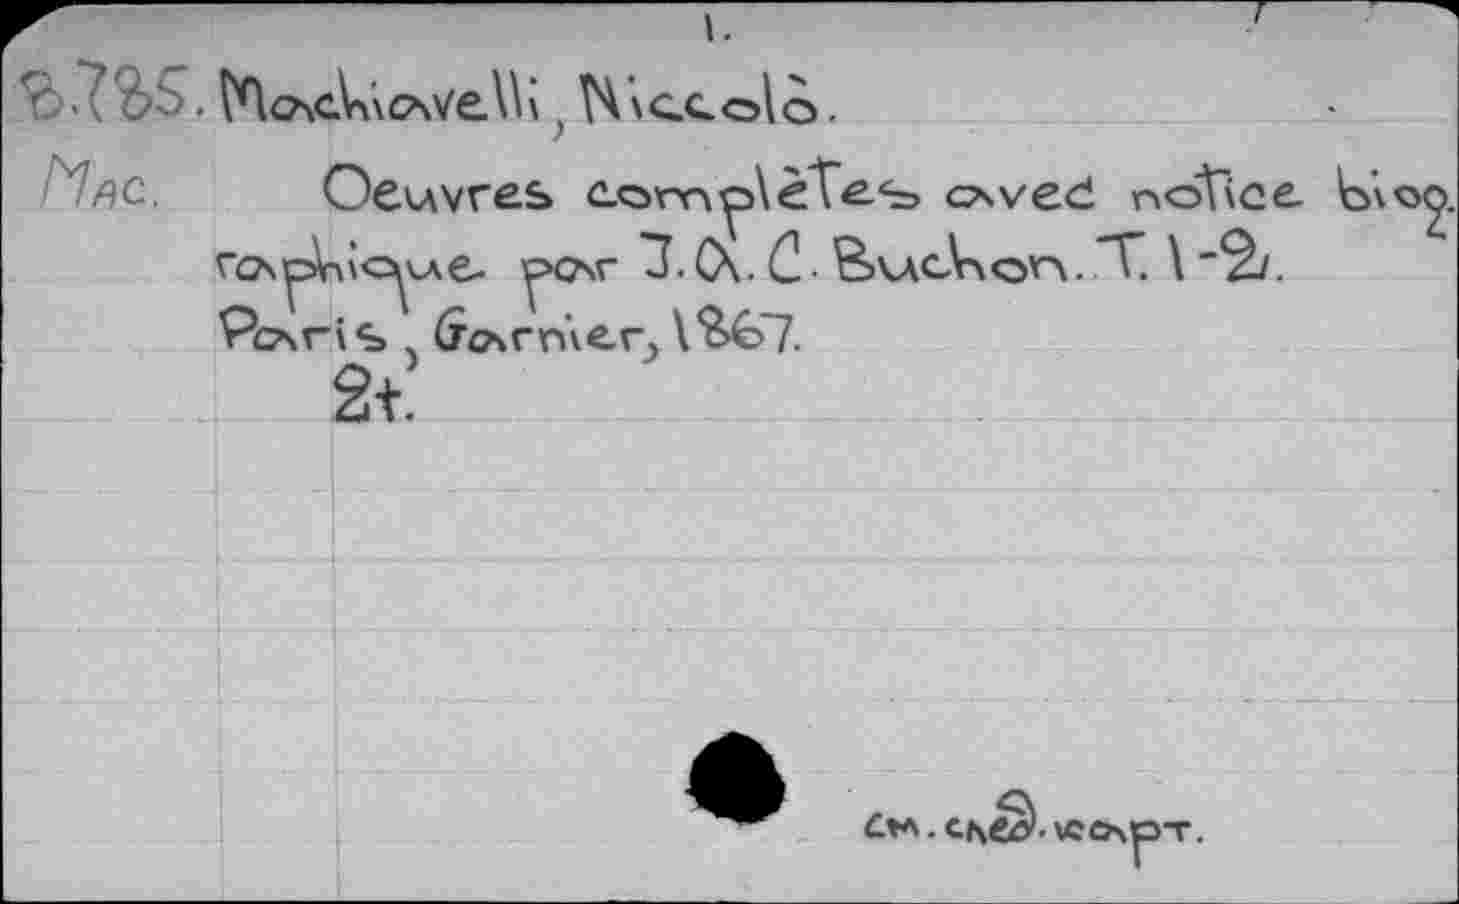 1.
8.785. Machiavelli, Niccolò.
Mac. Oeuvres complètes aved notice biog.
raphique par J.A.C. Buchon. T. 1-2.
Paris, Garnier, 1867.
2t.
см. след. карт.